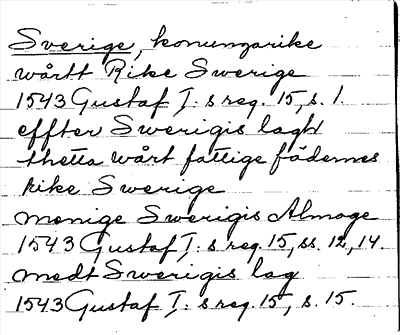 Sverige, konungarike
wårtt Rike Swerige
1543 Gustaf I: s reg. 15, s. 1.
effter Swerigis lagh
thetta wårt fattige fädernes
rike Swerige
menige Swerigis Almoge
1543 Gustaf I: s reg. 15, ss. 12, 14.
medt Swerigis lag
1543 Gustaf I: s reg. 15, s. 15.